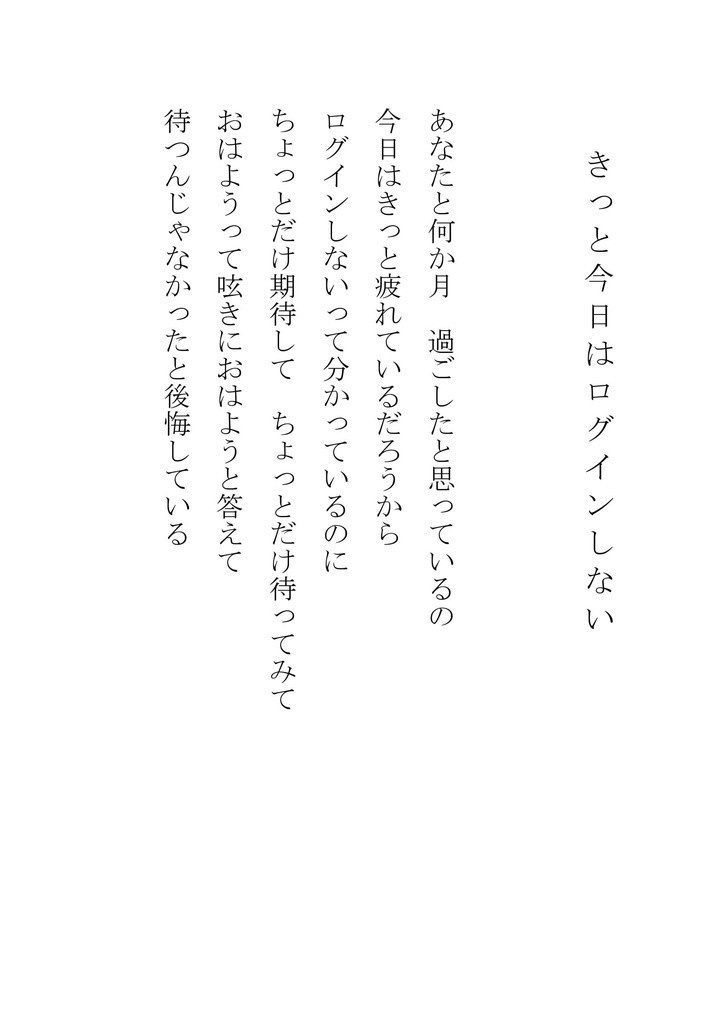 きっと今日はログインしない
あなたと何か月　過ごしたと思っているの
今日はきっと疲れているだろうから
ログインしないって分かっているのに
ちょっとだけ期待して　ちょっとだけ待ってみて
おはようって呟きにおはようと答えて
待つんじゃなかったと後悔している